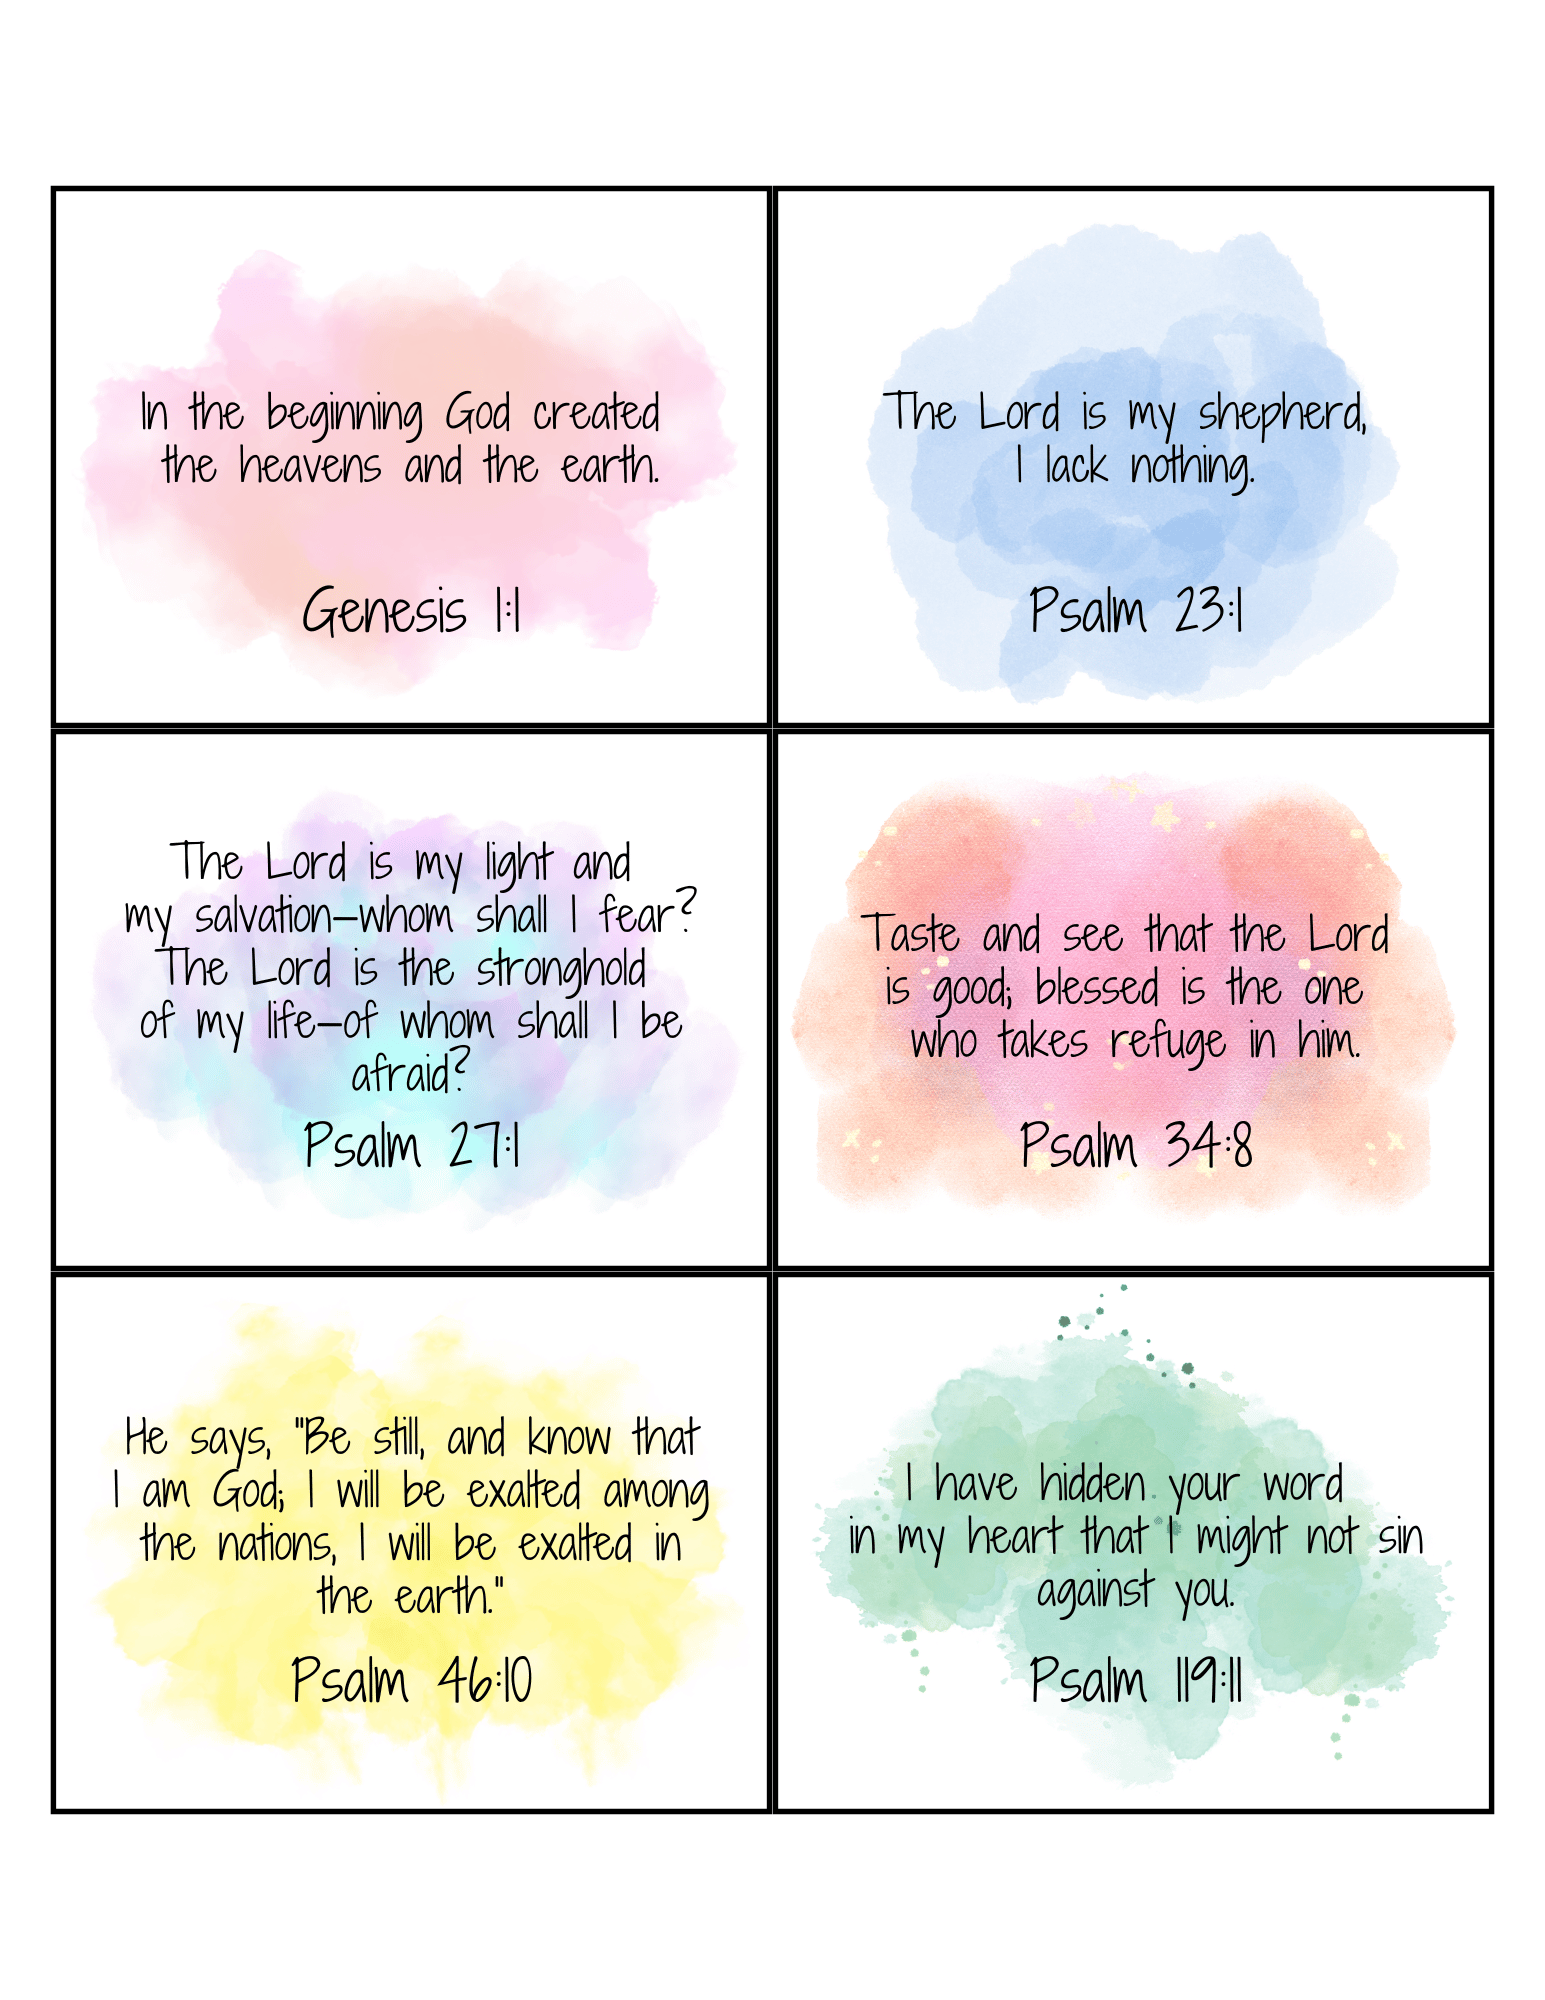 In the beginning God created
the heavens and the earth.
Genesis 1:1
The Lord is my shepherd,
I lack nothing.
Psalm 23:1
The Lord is my light and
my salvation—whom shall I fear?
The Lord is the stronghold
of my life—of whom shall I be
afraid?
Psalm 27:1
Taste and see that the Lord
is good; blessed is the one
who takes refuge in him.
Psalm 34:8
He says, "Be still, and know that
I am God; I will be exalted among
the nations, I will be exalted in
the earth."
Psalm 46:10
I have hidden your word
in my heart that I might not sin
against you.
Psalm 119:11